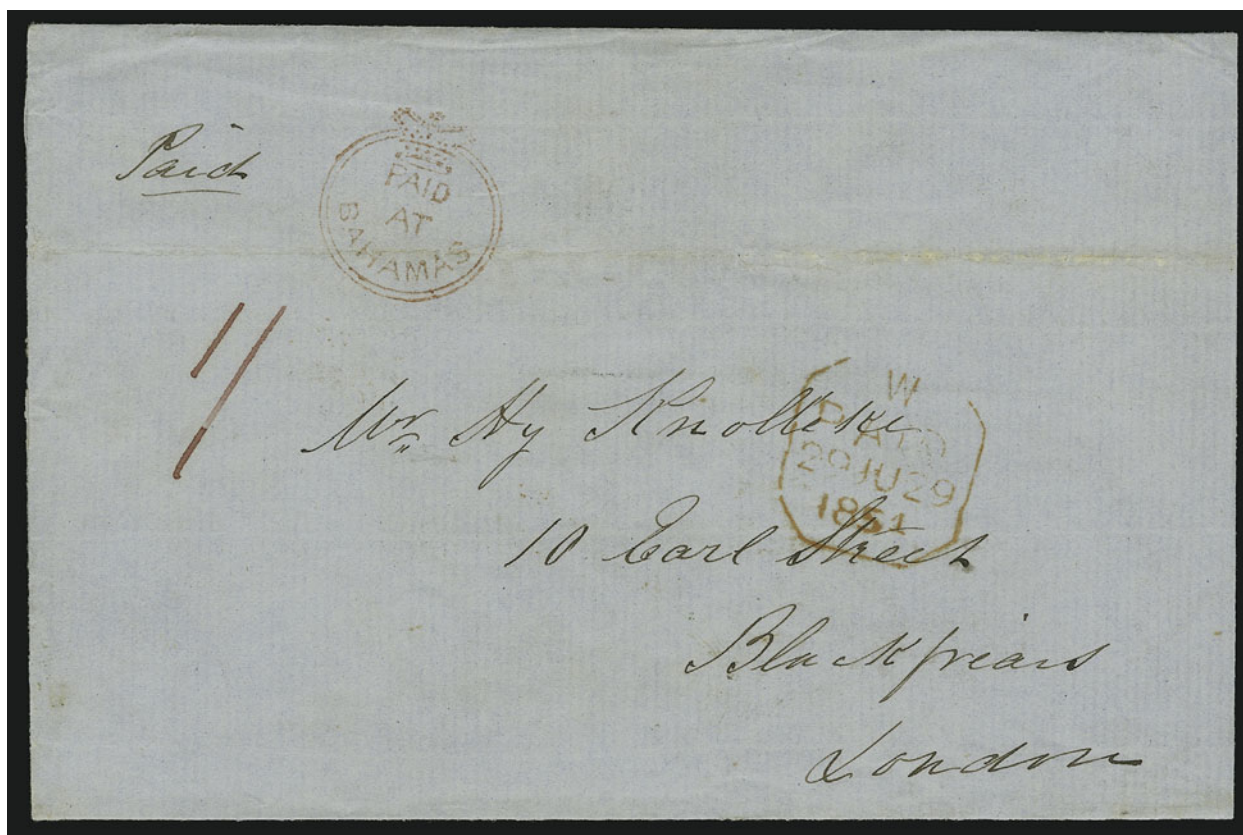 Paid
PAID
AT
BAHAMAS
1/
W
PAID
29 JU 29
1851
Mr Hy Knolleke
10 Earl Street
Blackfriars
London